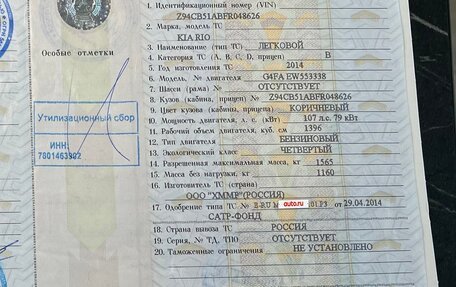 1. Идентификационный номер (VIN)
Z94CB51ABFR048626
2. Марка, модель ТС
KIA RIO
3. Наименование (тип ТС) ЛЕГКОВОЙ
4. Категория ТС (А, В, С, D, прицеп) B
5. Год изготовления ТС 2014
6. Модель, № двигателя G4FA EW553338
7. Шасси (рама) № ОТСУТСТВУЕТ
8. Кузов (кабина, прицеп) № Z94CB51ABFR048626
9. Цвет кузова (кабины, прицепа) КОРИЧНЕВЫЙ
10. Мощность двигателя, л. с. (кВт) 107 л.с. 79 кВт
11. Рабочий объем двигателя, куб. см 1396
12. Тип двигателя БЕНЗИНОВЫЙ
13. Экологический класс ЧЕТВЕРТЫЙ
14. Разрешенная максимальная масса, кг 1565
15. Масса без нагрузки, кг 1160
16. Изготовитель ТС (страна)
ООО "ХММР"(РОССИЯ)
17. Одобрение типа ТС № E-RU auto.ru .01.P3 от 29.04.2014
САТР-ФОНД
18. Страна вывоза ТС РОССИЯ
19. Серия, № ТД, ТПО ОТСУТСТВУЕТ
20. Таможенные ограничения НЕ УСТАНОВЛЕНО
Особые отметки
Утилизационный сбор
ИНН:
7801463902